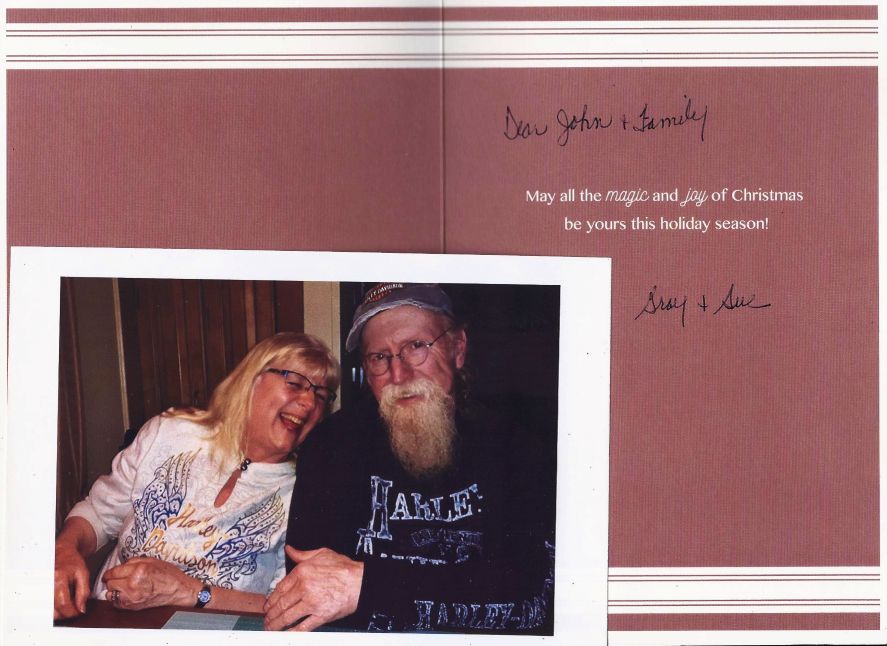 Dear John + Family
May all the magic and joy of Christmas
be yours this holiday season!
+ Sue
Harley
Davidson
HARLE
HARLEY-DA